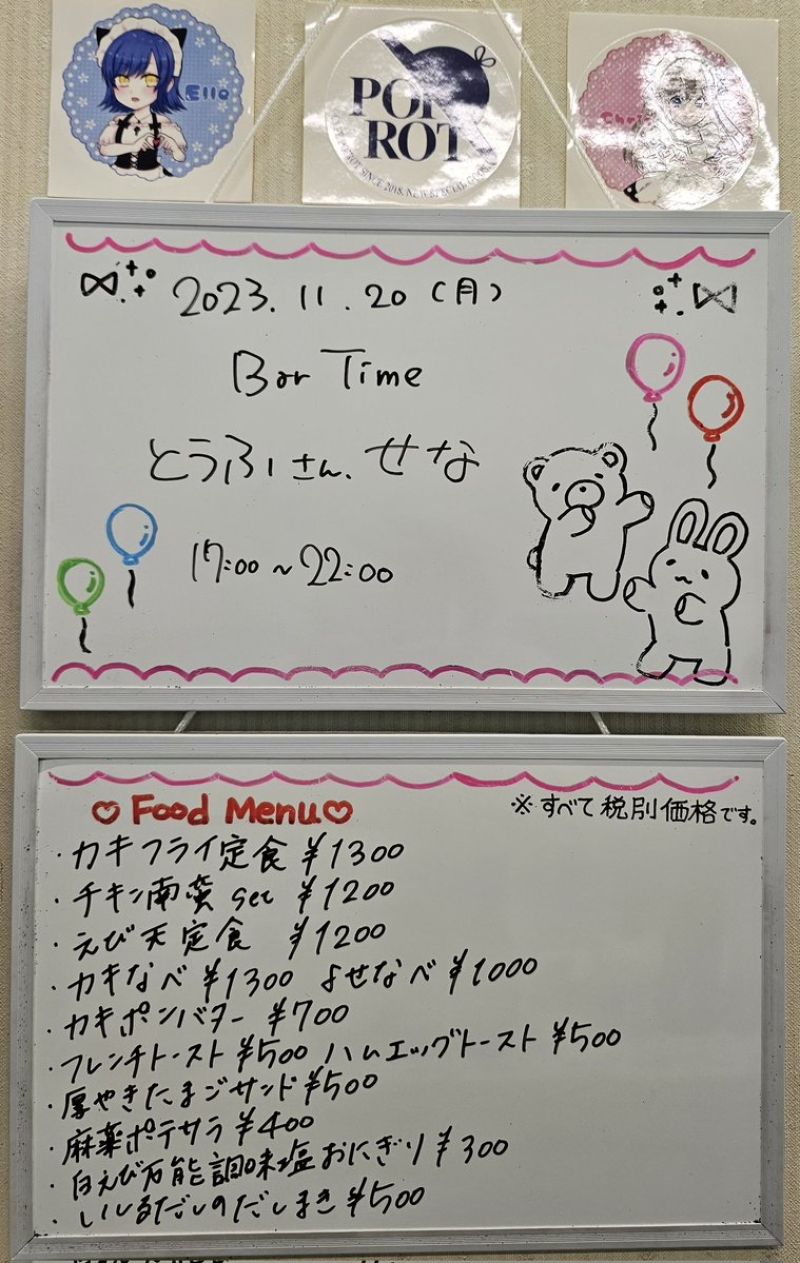 Ello
POR
ROT
2023.11.20(月)
Bar Time
とうふさん、せな
17:00~22:00
♡Food Menu♡
※すべて税別価格です。
・カキフライ定食 ¥1300
・チキン南蛮 set ¥1200
・えび天定食 ¥1200
・カキなべ ¥1300 よせなべ ¥1000
・カキポンバター ¥700
・フレンチトースト ¥500 ハムエッグトースト ¥500
・厚やきたまごサンド ¥500
・麻薬ポテサラ ¥400
・白えび万能調味塩おにぎり ¥300
・いしるだしのだしまき ¥500